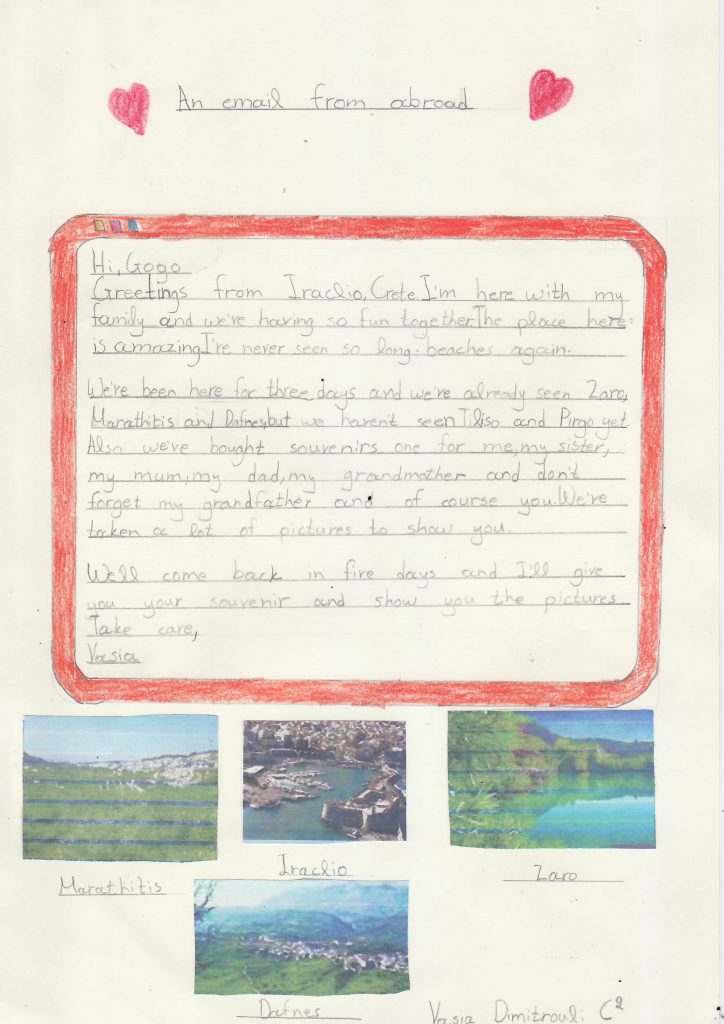 An email from abroad
Hi, Gogo
Greetings from Iraclio, Crete. I'm here with my
family and we're having so fun together. The place here
is amazing I've never seen so long beaches again.
We've been here for three days and we've already seen Zaro,
Marathitis and Dafnes, but we haven't seen Tiliso and Pirgo yet.
Also we've bought souvenirs one for me, my sister,
my mum, my dad, my grandmother and don't
forget my grandfather and of course you. We've
taken a lot of pictures to show you.
We'll come back in five days and I'll give
you your souvenir and show you the pictures.
Take care,
Vasia
Marathitis
Iraclio
Zaro
Dafnes
Vasia Dimitrouli C2